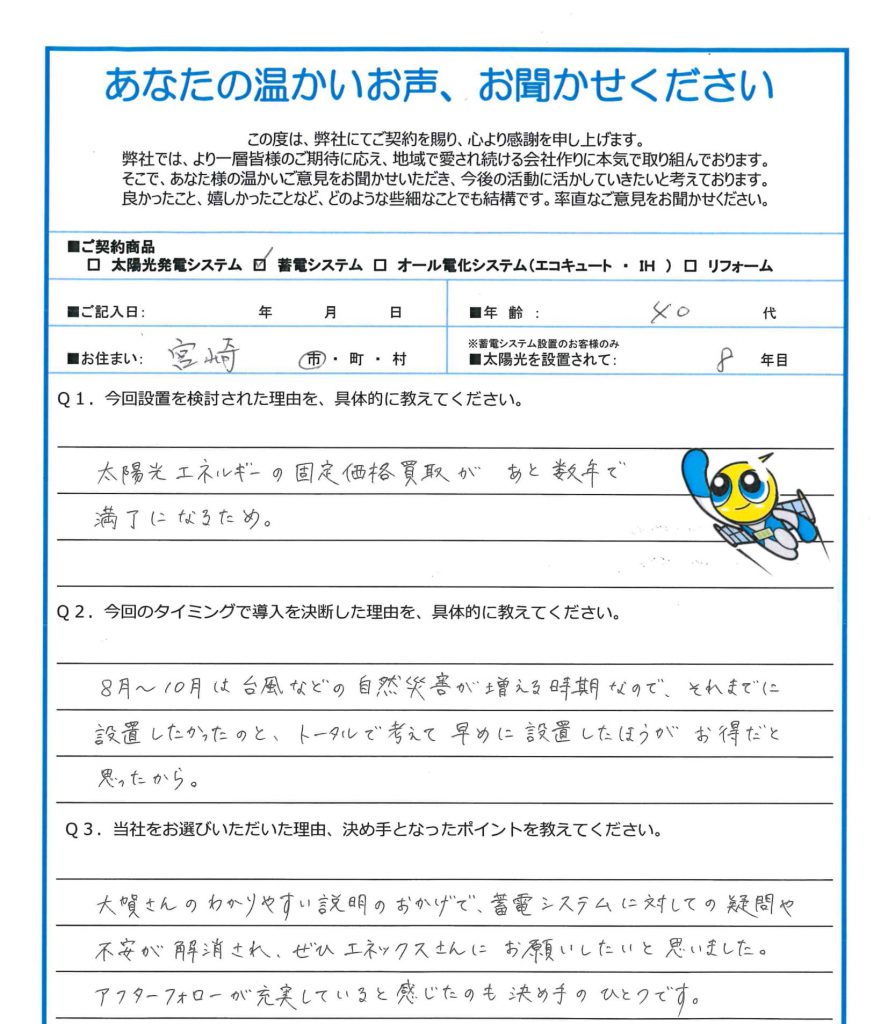 あなたの温かいお声、お聞かせください
この度は、弊社にてご契約を賜り、心より感謝を申し上げます。
弊社では、より一層皆様のご期待に応え、地域で愛され続ける会社作りに本気で取り組んでおります。
そこで、あなた様の温かいご意見をお聞かせいただき、今後の活動に活かしていきたいと考えております。
良かったこと、嬉しかったことなど、どのような些細なことでも結構です。率直なご意見をお聞かせください。
■ご契約商品
□ 太陽光発電システム ☑ 蓄電システム □ オール電化システム(エコキュート ・ IH ) □ リフォーム
■ご記入日: 年 月 日 ■年 齢 : 40 代
■お住まい: 宮崎 市・町・村 ※蓄電システム設置のお客様のみ
■太陽光を設置されて: 8 年目
Q1. 今回設置を検討された理由を、具体的に教えてください。
太陽光エネルギーの固定価格買取が あと数年で
満了になるため。
Q2. 今回のタイミングで導入を決断した理由を、具体的に教えてください。
8月~10月は台風などの自然災害が増える時期なので、それまでに
設置したかったのと、トータルで考えて早めに設置したほうがお得だと
思ったから。
Q3. 当社をお選びいただいた理由、決め手となったポイントを教えてください。
大賀さんのわかりやすい説明のおかげで、蓄電システムに対しての疑問や
不安が解消され、ぜひエネックスさんにお願いしたいと思いました。
アフターフォローが充実していると感じたのも決め手のひとつです。